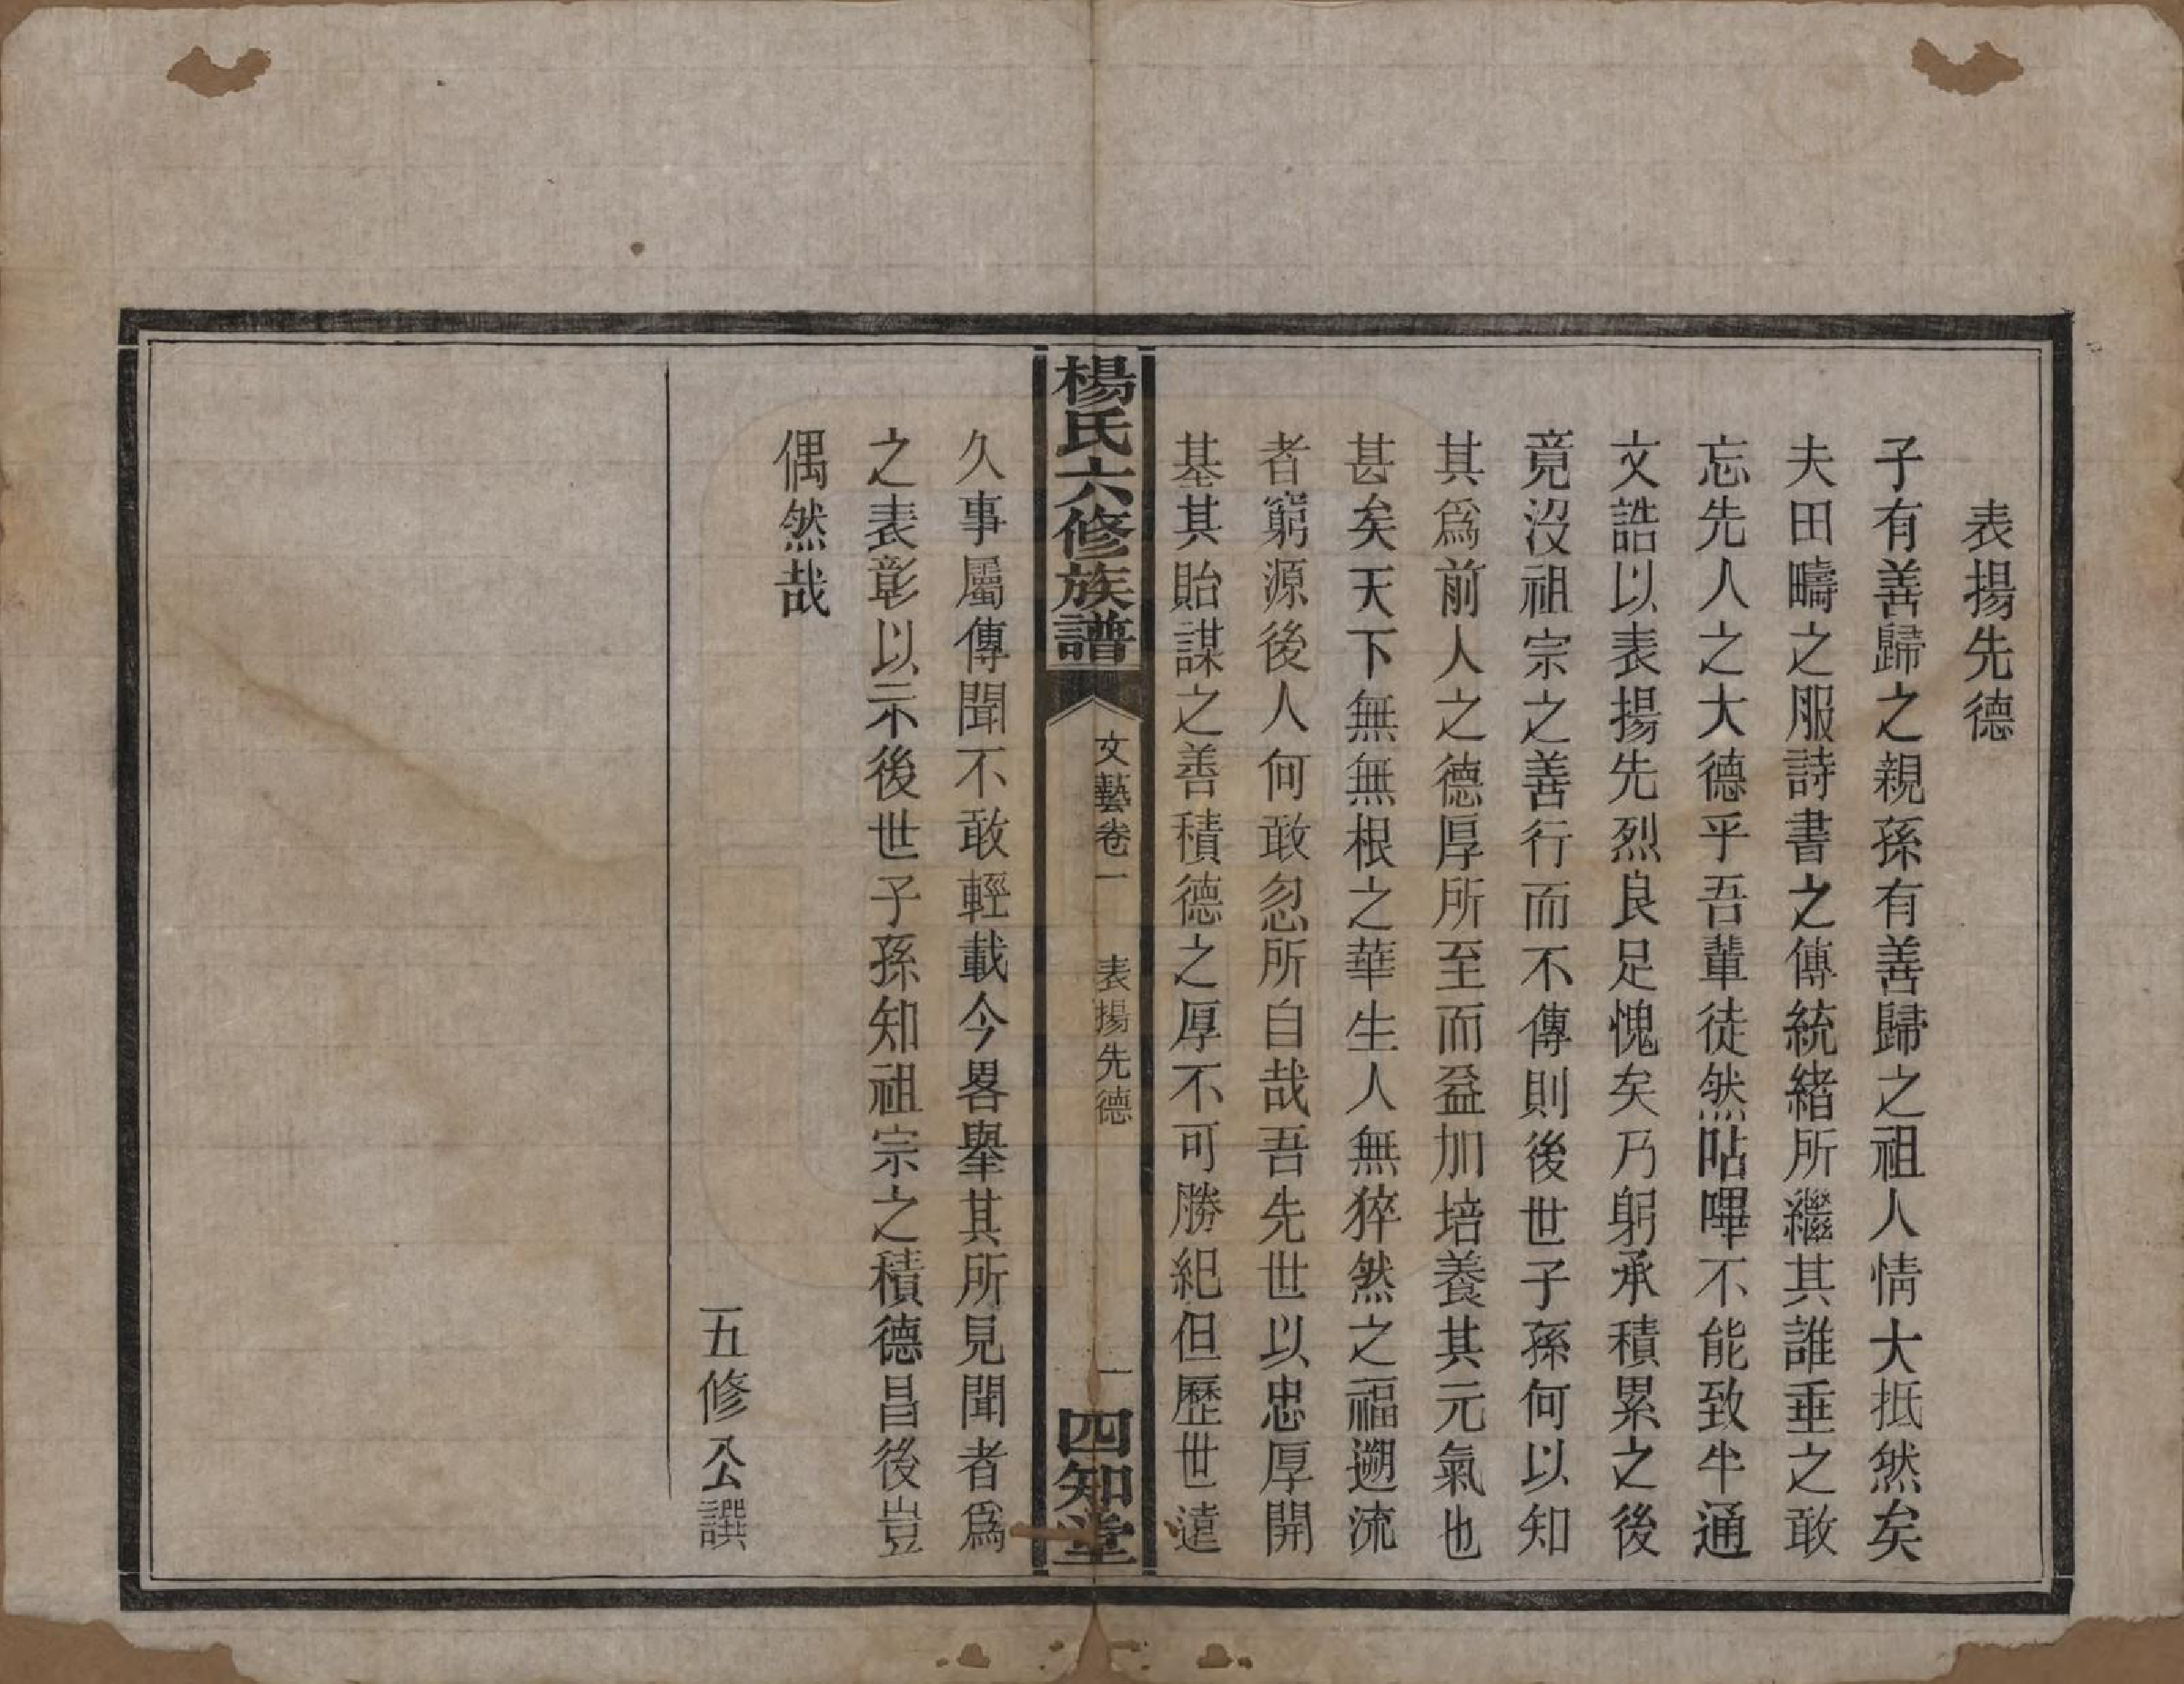 表揚先德
子有善歸之親孫有善歸之祖人情大抵然矣
夫田疇之服詩書之傳統緒所繼其誰垂之敢
忘先人之大德乎吾輩徒然呫嗶不能致半通
文誥以表揚先烈良足愧矣乃躬承積累之後
竟沒祖宗之善行而不傳則後世子孫何以知
其爲前人之德厚所至而益加培養其元氣也
甚矣天下無無根之華生人無猝然之福遡流
者窮源後人何敢忽所自哉吾先世以忠厚開
基其貽謀之善積德之厚不可勝紀但歷世遠
楊氏六修族譜
文藝卷一
表揚先德
一
四知堂
久事屬傳聞不敢輕載今畧舉其所見聞者爲
之表彰以示後世子孫知祖宗之積德昌後豈
偶然哉
五修公譔